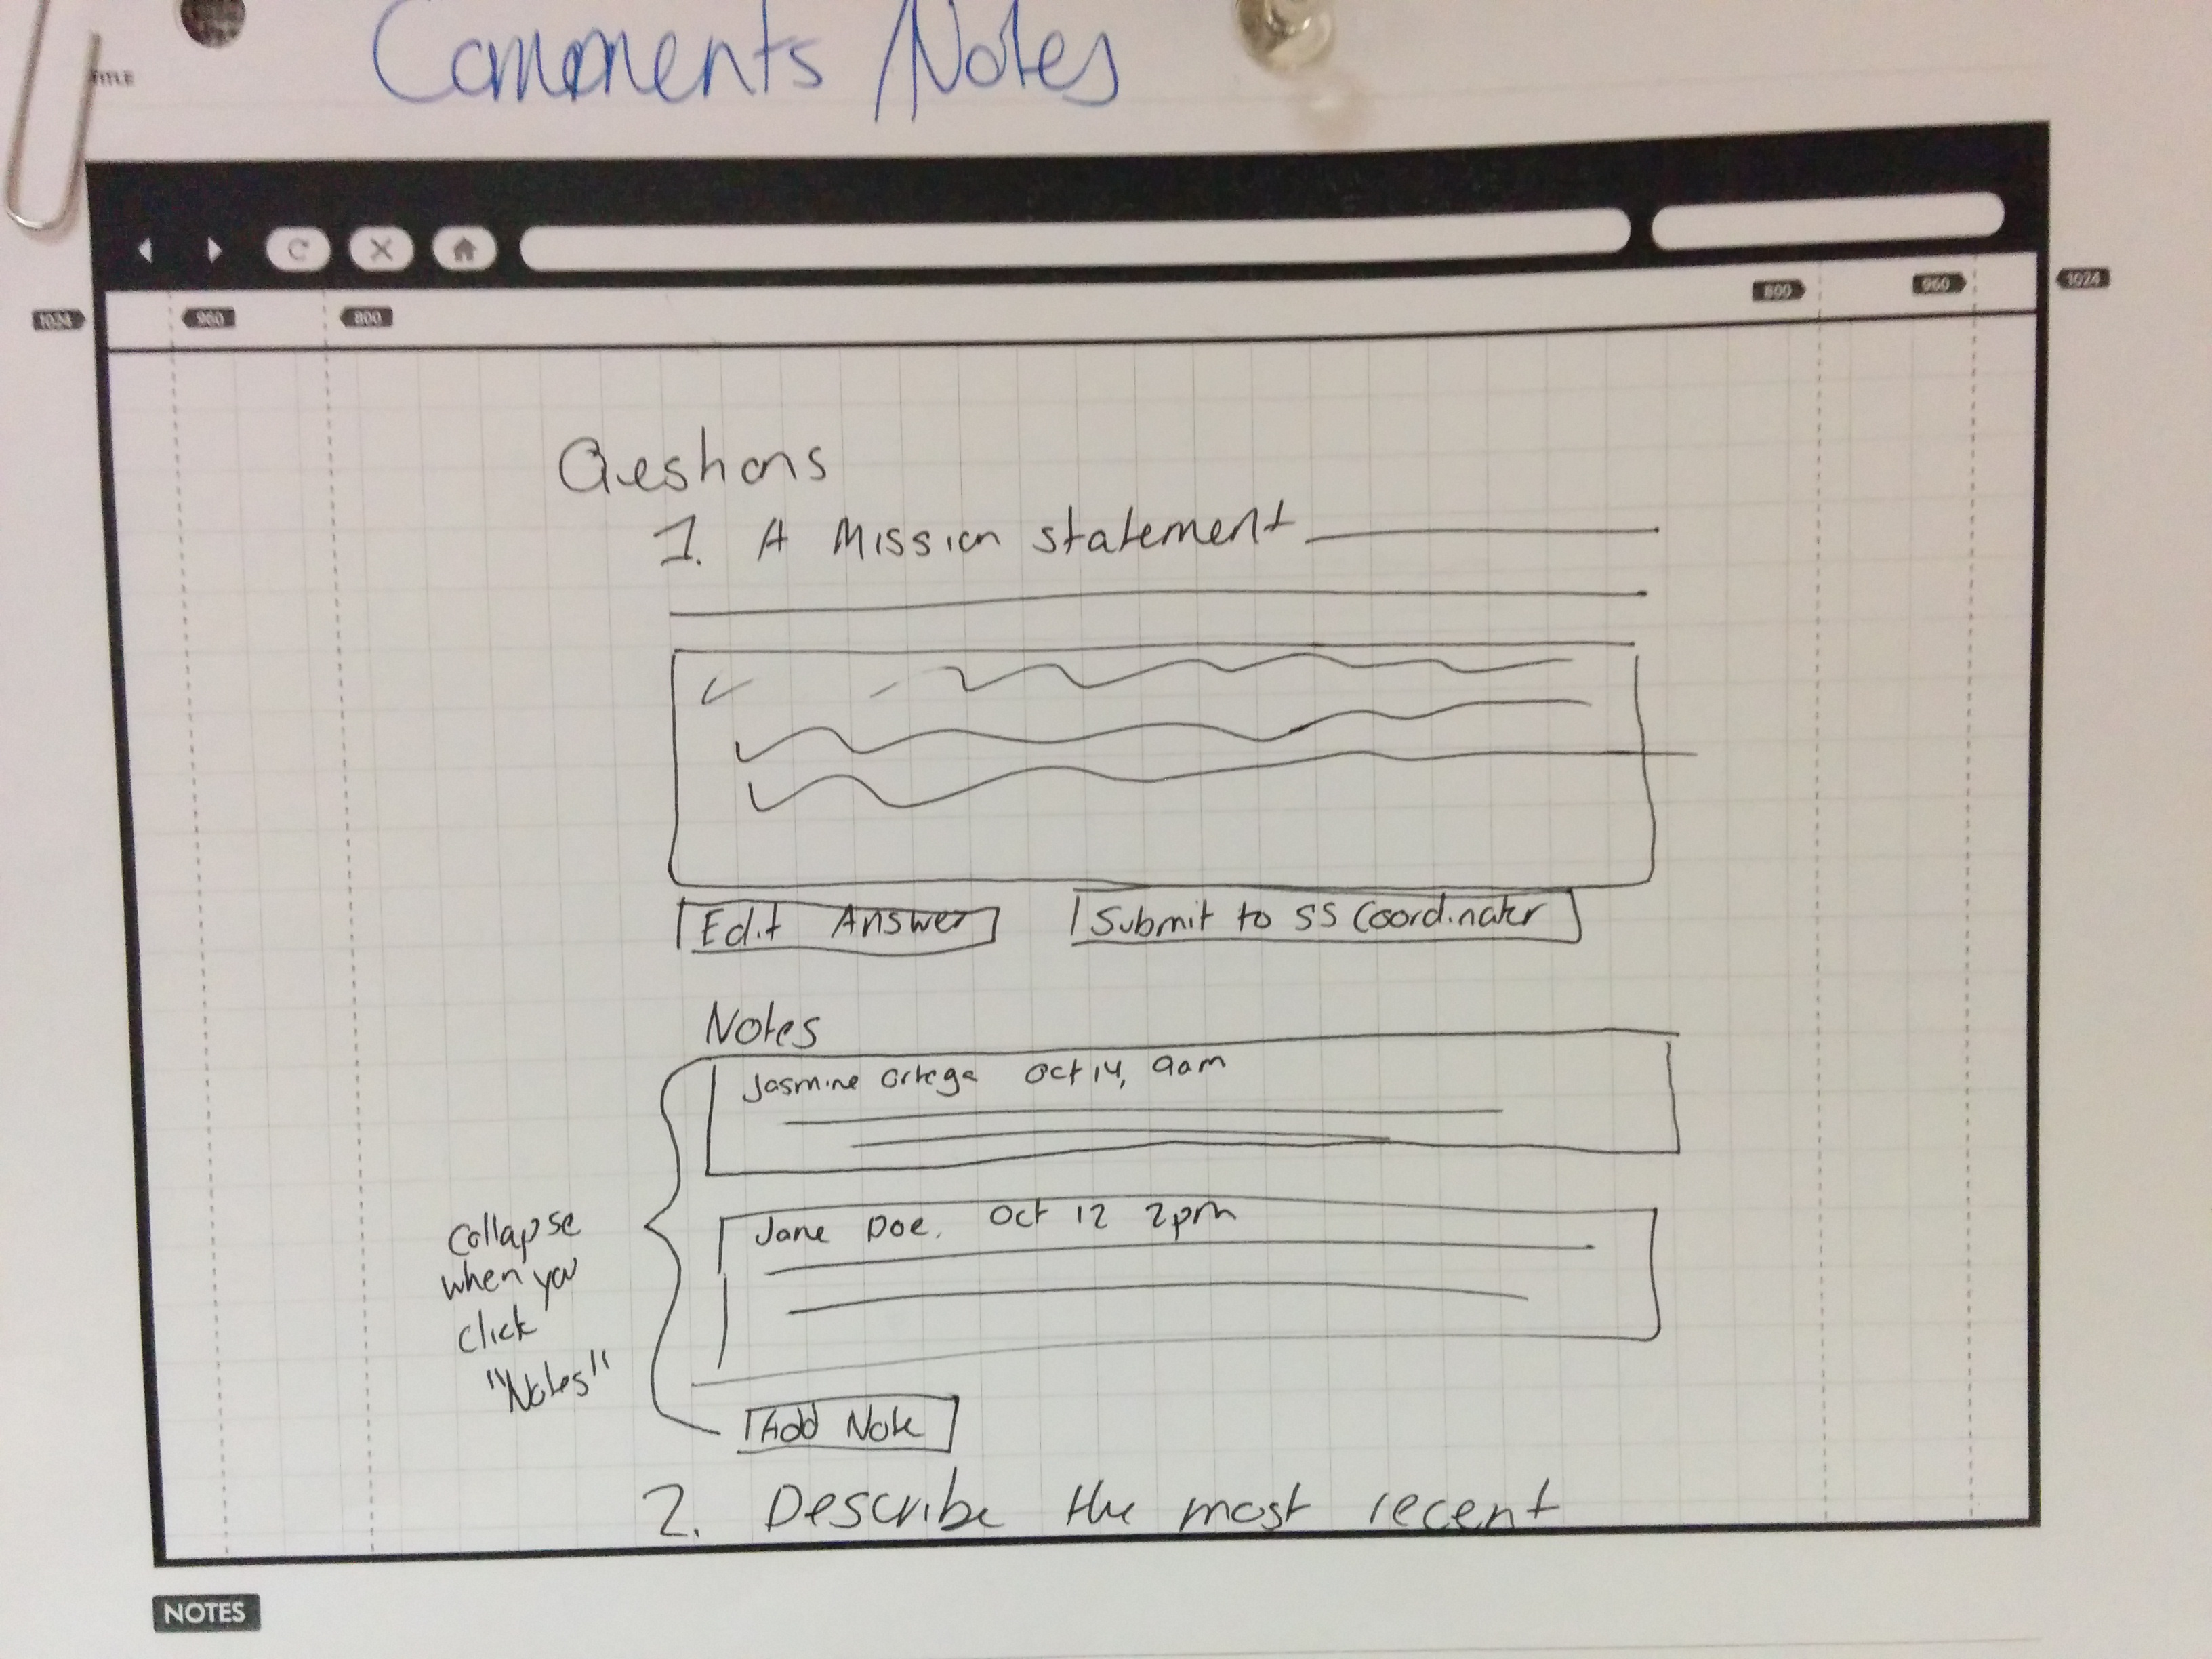 TITLE
Comments/Notes
1024 960 800 800 960 1024
Qestions
1. A Mission statement
Edit Answer Submit to SS Coordinator
Notes
Jasmine Ortega Oct 14, 9am
Jane Doe. Oct 12 2pm
Collapse
when you
click
"Notes"
Add Note
2. Describe the most recent
NOTES